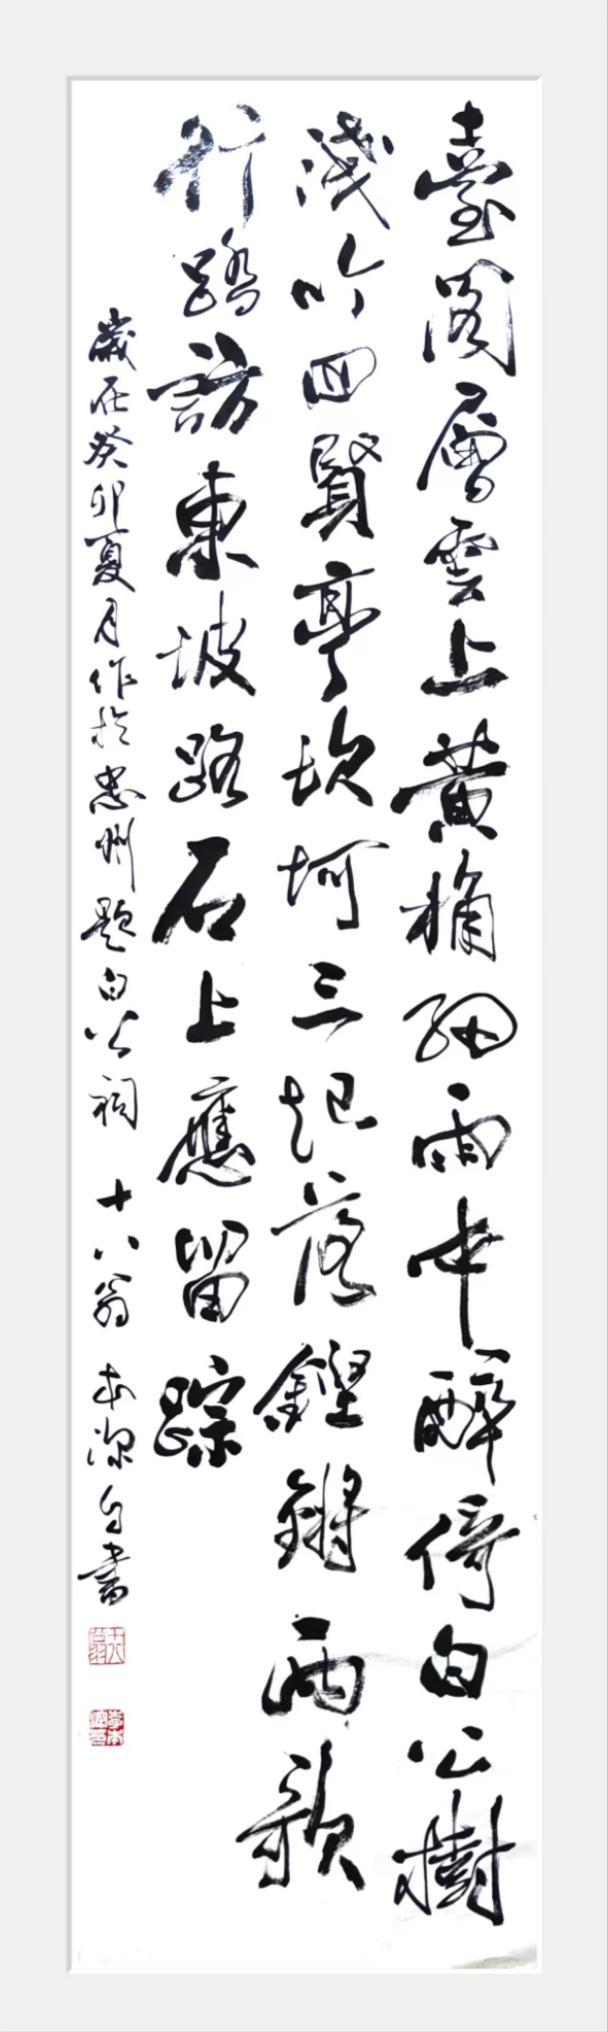 臺閣層雲上黃桷細雨中醉倚白公樹
淺吟四賢亭坎坷三起落鏗鏘兩歌
行踏訪東坡路石上應留踪
歲在癸卯夏月作於忠州題白公祠 十八翁 本源自書